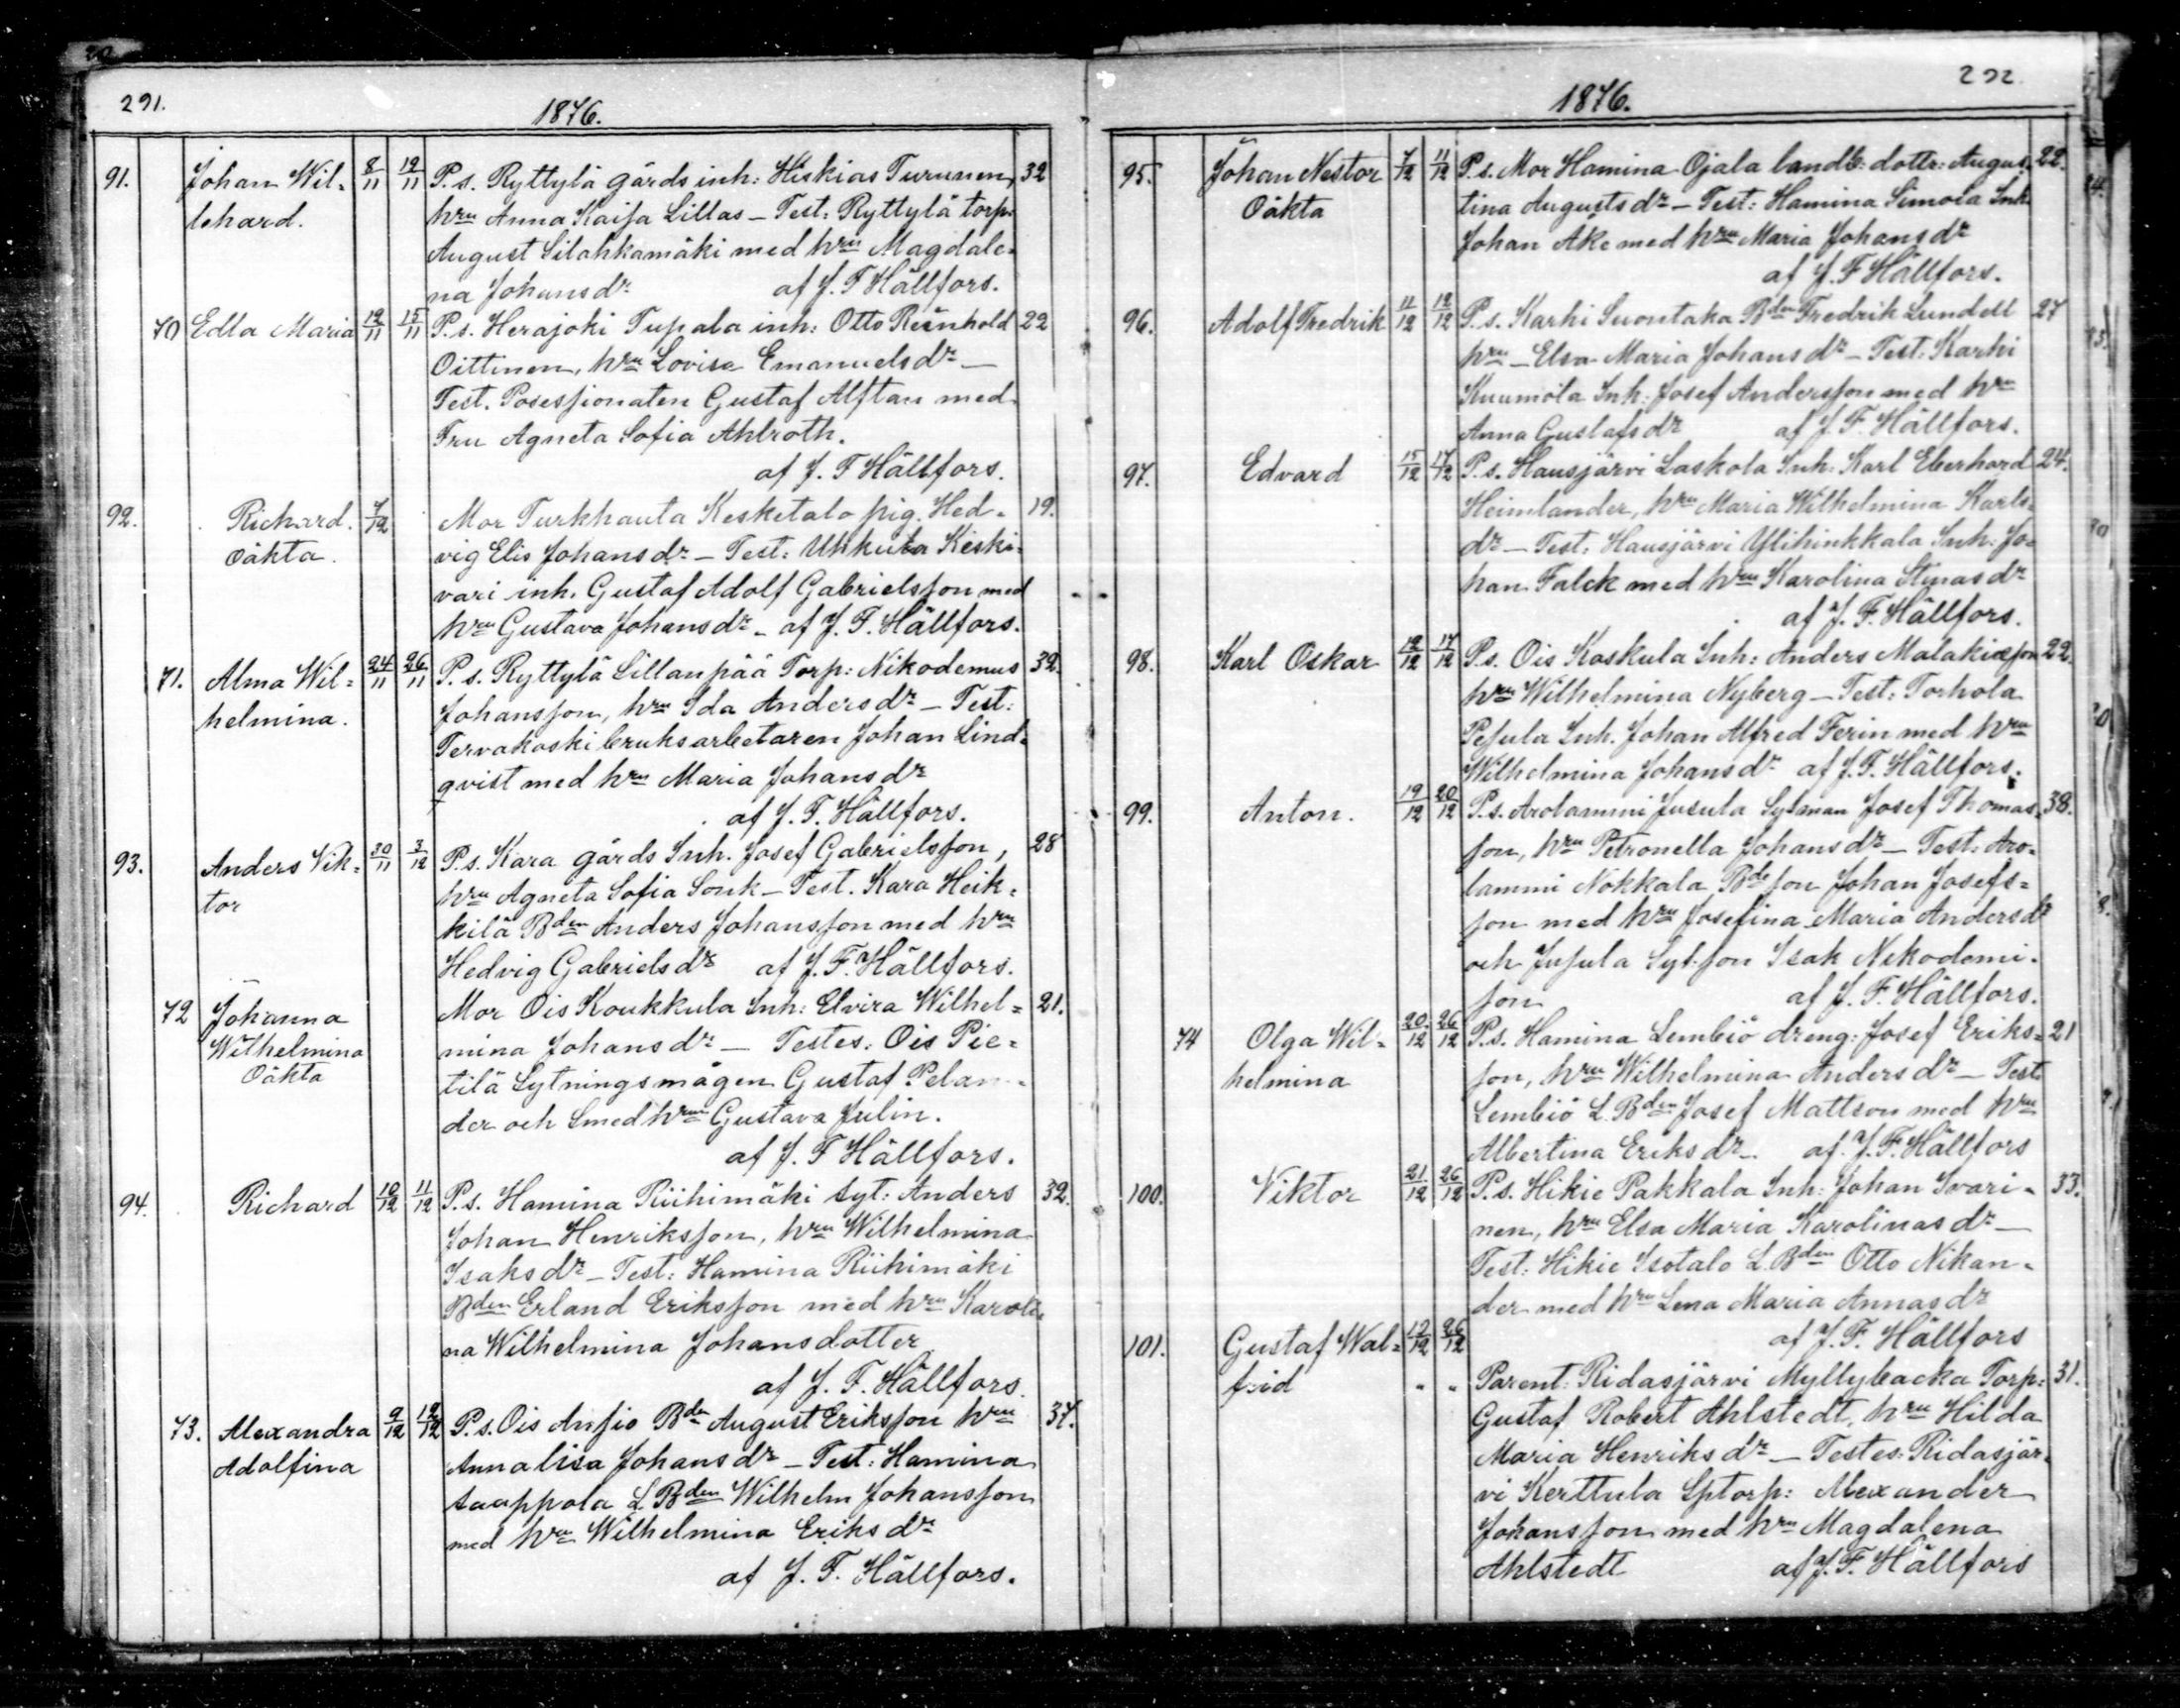 291.
1876.
91. Johan Wil= 8/11 12/11 P. s. Ryttylä gårds inh: Hiskias Turunen, 32
lehard. hru Anna Kaisa Lillas – Test: Ryttylä torp:
August Silahkamäki med hru Magdale=
na Johansdr af J. F Hällfors.
70 Edla Maria 12/11 15/11 P. s. Herajoki Tupala inh: Otto Reinhold 22
Oittinen, hru Lovisa Emanuelsdr –
Test. Posessionaten Gustaf Alftan med
Fru Agneta Sofia Ahlroth.
af J. F Hällfors.
92. Richard. 7/12 Mor Turkhauta Kesketalo pig. Hed= 19.
Oäkta. vig Elis Johansdr – Test: Uhkuta Keski=
vari inh. Gustaf Adolf Gabrielsson med
hru Gustava Johansdr – af J. F. Hällfors.
71. Alma Wil= 24/11 26/11 P. s. Ryttylä Lillanpää Torp: Nikodemus 32.
helmina. Johansson, hru Ida Andersdr – Test:
Tervakoski bruksarbetaren Johan Lind=
qvist med hru Maria Johansdr
af J. F. Hällfors.
93. Anders Vik= 30/11 3/12 P. s. Kara gårds Inh. Josef Gabrielsson, 28
tor hru Agneta Sofia Sonk – Test. Kara Heik=
kilä Bden Anders Johansson med hru
Hedvig Gabrielsdr af J. F. Hällfors.
72 Johanna Mor Ois Koukkula Inh: Elvira Wilhel= 21.
Wilhelmina mina Johansdr – Testes: Ois Pie=
Oäkta tilä Lytningsmågen Gustaf Pelan=
der och Smed hru Gustava Julin.
af J. F Hällfors.
94. Richard 10/12 11/12 P. s. Hamina Riihimäki syt: Anders 32.
Johan Henriksson, hru Wilhelmina
Isaksdr – Test: Hamina Riihimäki
Bden Erland Eriksson med hru Karoli=
na Wilhelmina Johansdotter
af J. F. Hällfors.
73. Alexandra 9/12 12/12 P. s. Ois Ansio Bdn August Eriksson hru 37.
Adolfina Annalisa Johansdr – Test: Hamina
Saappola L. Bden Wilhelm Johansson
med hru Wilhelmina Eriksdr
af J. F. Hällfors.
292
1876.
95. Johan Nestor 7/12 11/12 P. s. Mor Hamina Ojala landb: dottr: Augus= 22.
Oäkta tina Augustsdr – Test: Hamina Simola Inh.
Johan Ake med hru Maria Johansdr
af J. F Hällfors.
96. Adolf Fredrik 11/12 12/12 P. s. Karhi Suontaka Bden Fredrik Lundell 27
hru – Elsa Maria Johansdr – Test: Karhi
Kuumola Inh: Josef Andersson med hru
Anna Gustafsdr af J. F. Hällfors.
97. Edvard 15/12 17/12 P. s. Hausjärvi Laskola Inh: Karl Eberhard 24.
Heimlander, hru Maria Wilhelmina Karls=
dr – Test: Hausjärvi Ylihinkkala Inh: Jo=
han Falck med hru Karolina Stinasdr
af J. F. Hällfors.
98. Karl Oskar 12/12 17/12 P. s. Ois Koskula Inh: Anders Malakiasson 22.
hru Wilhelmina Nyberg – Test: Torhola
Pesula Inh. Johan Alfred Ferin med hru
Wilhelmina Johansdr af J. F. Hällfors.
99. Anton. 19/12 20/12 P. s. Arolammi Jusula Sytman Josef Thomas= 38.
son, hru Petronella Johansdr – Test: Aro=
lammi Nokkala Bde son Johan Josefs=
son med hru Josefina Maria Andersdr
och Jusula Syt. son Isak Nikodemi=
son af J. F. Hällfors.
74 Olga Wil= 20/12 26/12 P. s. Hamina Lembiö dreng: Josef Eriks= 21
helmina son, hru Wilhelmina Andersdr – Test:
Lembiö L. Bden Josef Mattson med hru
Albertina Eriksdr – af. J. F. Hällfors
100. Viktor 21/12 26/12 P. s. Hikie Pakkala Inh: Johan Ivari= 33.
nen, hru Elsa Maria Karolinasdr –
Test: Hikie Isotalo L. Bden Otto Nikan=
der med hru Lena Maria Annasdr
af J. F. Hällfors
101. Gustaf Wal= 12/12 26/12
frid " " Parent: Ridasjärvi Myllybacka Torp: 31.
Gustaf Robert Ahlstedt, hru Hilda
Maria Henriksdr – Testes: Ridasjär=
vi Kerttula Sptorp: Alexander
Johansson med hru Magdalena
Ahlstedt af J. F. Hällfors